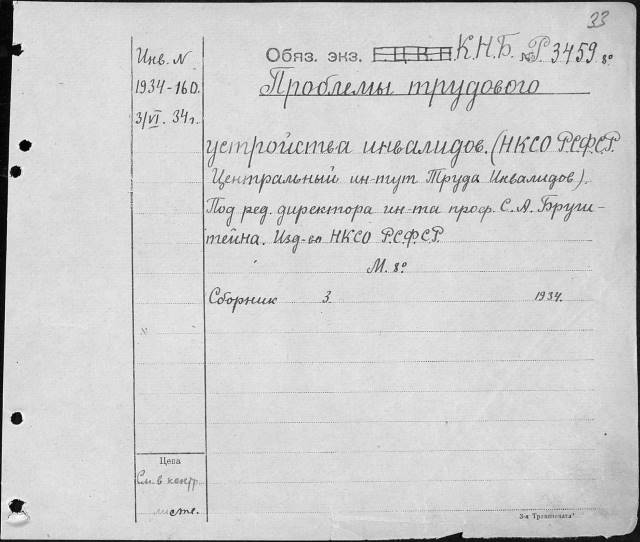 33
Инв. N
1934-160.
3/VI. 34 г.
Обяз. экз. Г.Ц.К.П. К.Н.Б. № Р 3459 8°
Проблемы трудового
устройства инвалидов. (НКСО Р.С.Ф.С.Р.
Центральный ин-тут Труда Инвалидов).
Под ред. директора ин-та проф. С. А. Бруш-
тейна. Изд-во НКСО Р.С.Ф.С.Р.
М. 8°
Сборник 3. 1934.
N
Цена
См. в контр.
листе.
3-я